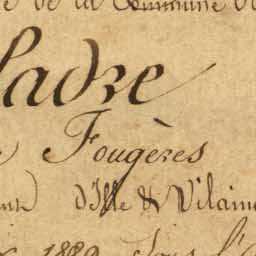 e de la Commune d
Ladre
Fougères
d'Ille & Vilaine
1880